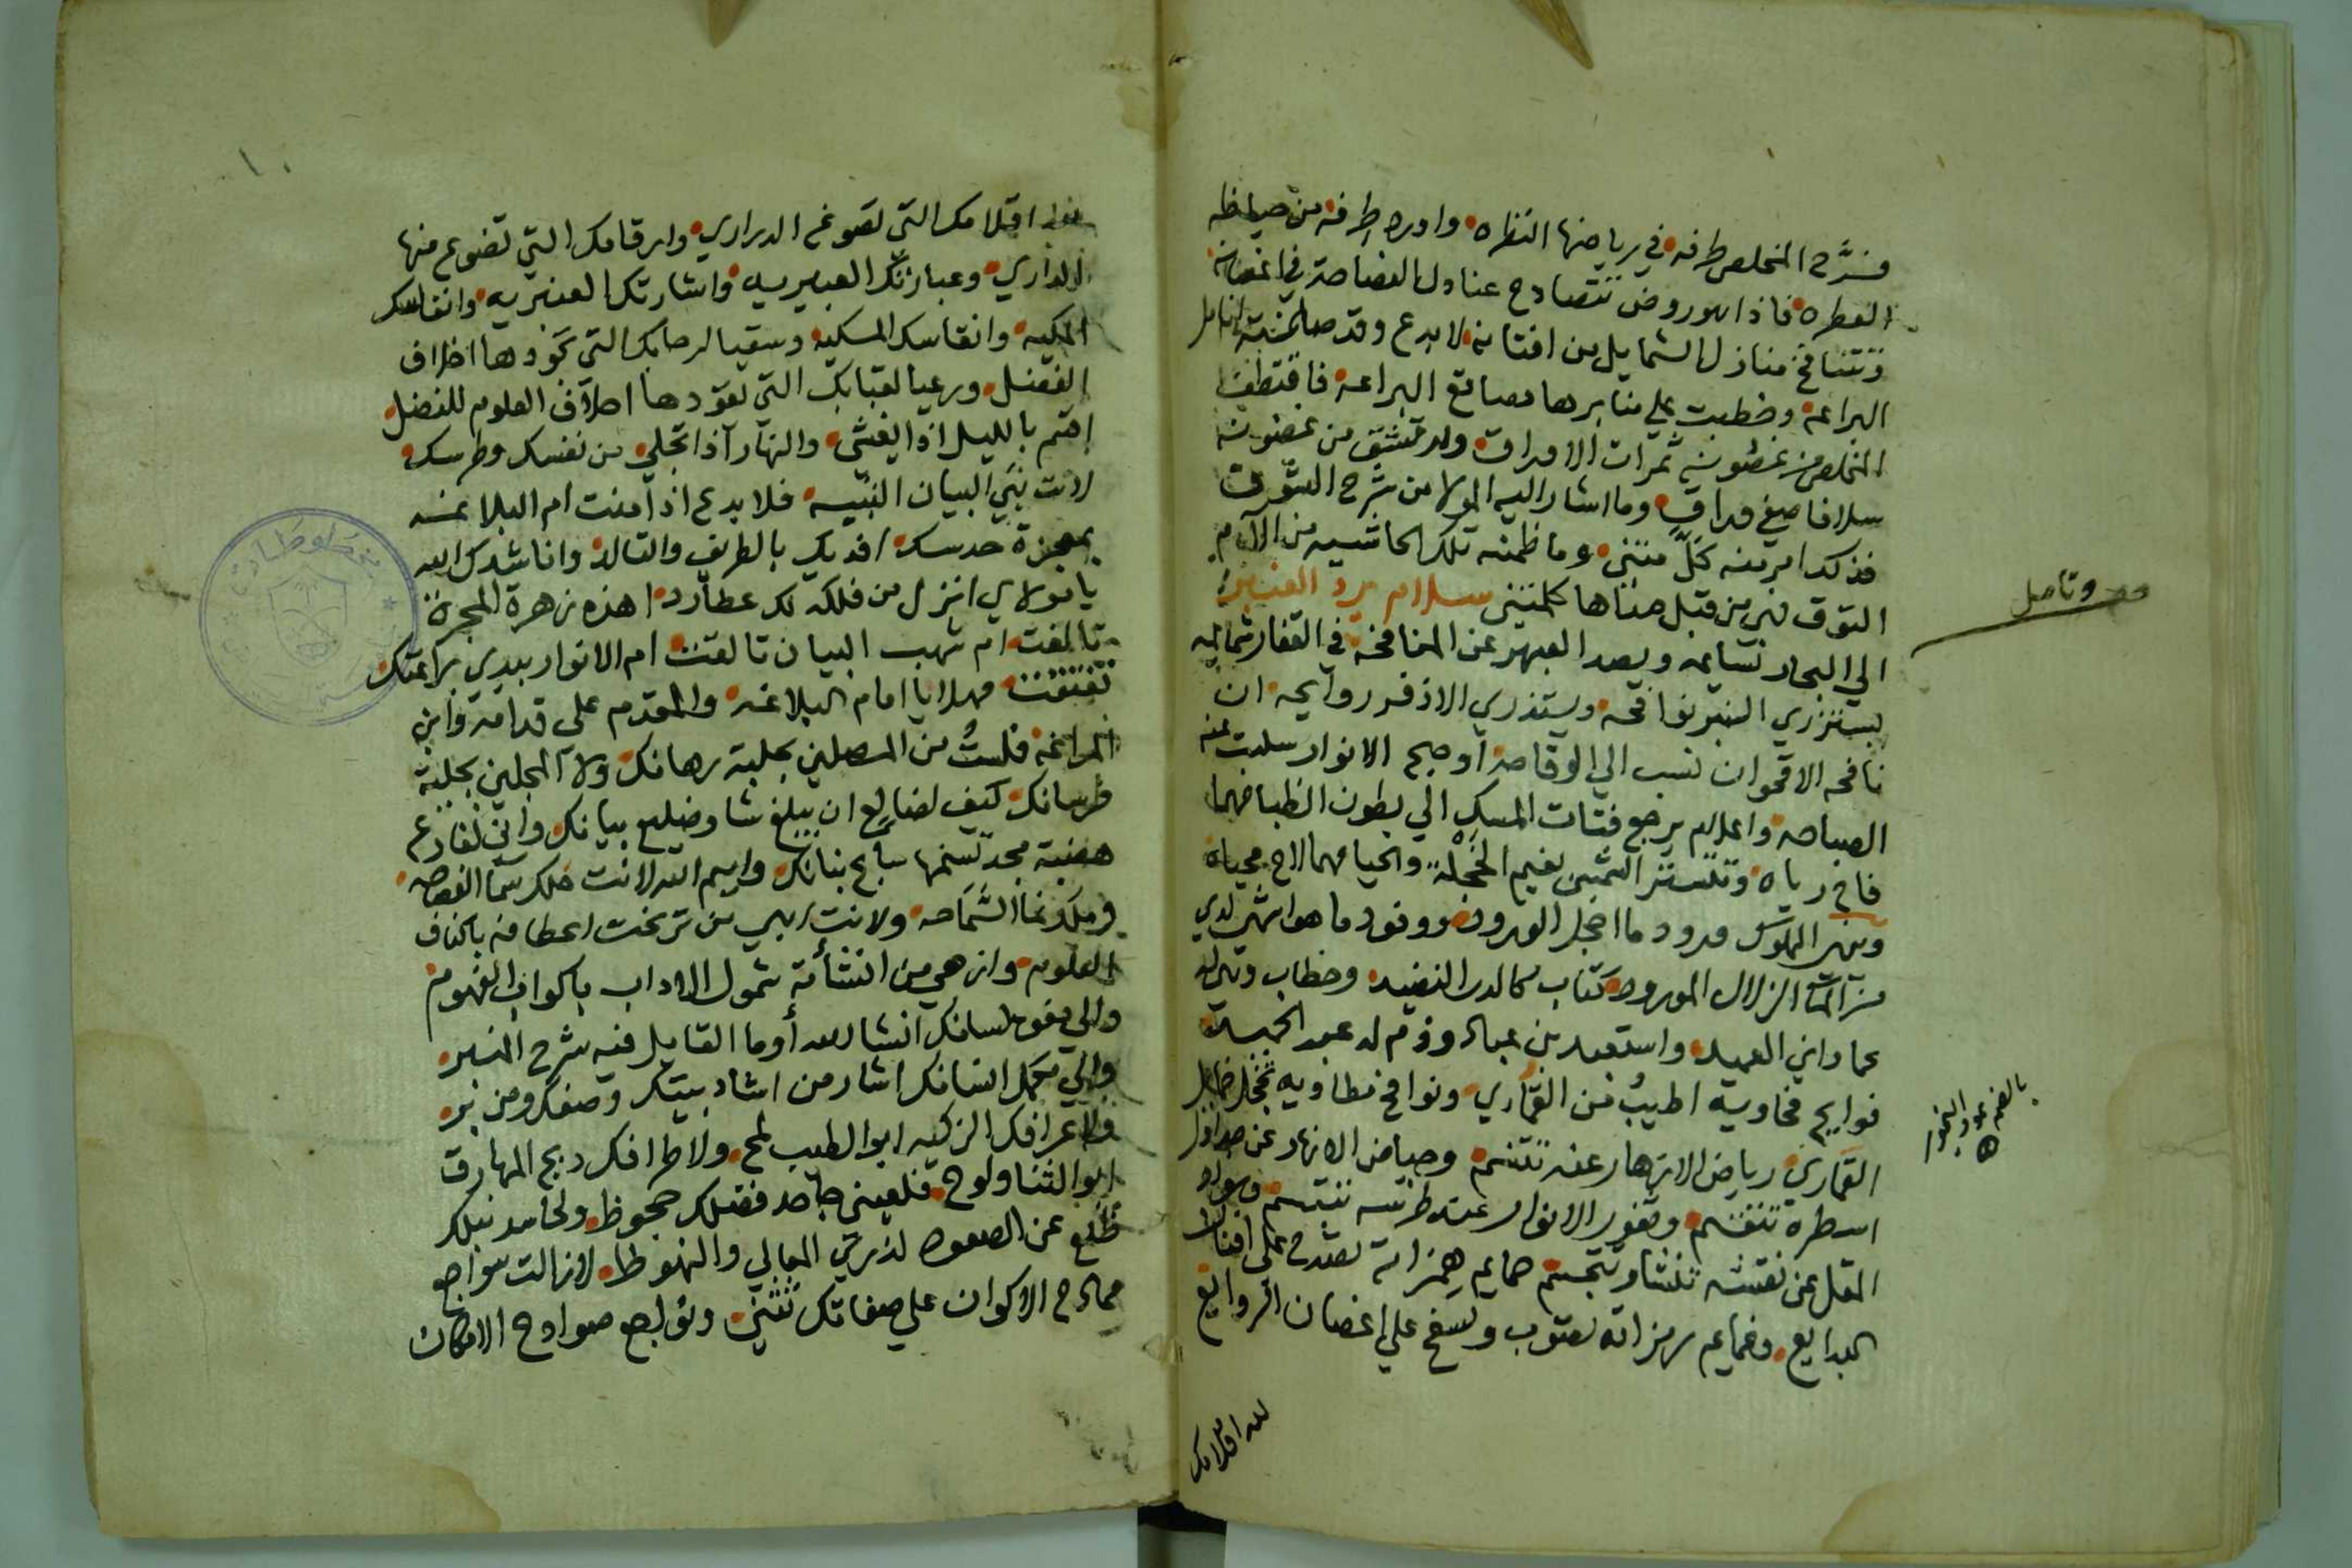 فسرَّح المخلص طرفه في رياضها النظره واورد طرفه من حياضه
العطره فاذا هو روض تتصادح عنادل الفصاحة في اغصانه
وتتنافح منازل الشمايل من افنانه لا بدع وقد صافحته انامل
البراعه وخطبت على منابرها مصاقع البراعه فاقتطف
المخلص من غصونه ثمرات الاوراق وارتشق من غصونه
سلافا صيغ وراق وما اشار اليه المولا من شرح الشوق
فذكد امر منه كل منثنى وما ظمنه تلك الحاشيه من الآم
التوق فهي من قبل صناها كلمتني سلام يرد العنبر
الي البحار نسايمه ويصد العبهر عن المنافحة في القفار شمايمه
يستزري العبير نوافحه ويستذري الاذفر روايحه ان
نافحه الاقحوان نسب الي الوقاحة او صبح الانوار سلبت عنه
الصباحه واعلام يرجع فتات المسك الي بطون الظبا مهما
فاح رياه وتستتر الشمس بغيم الخجلة والحيا مهما لاح محياه
وينهى المملوك ورود ما اخجل الورود ووفود ما هو اشهى لدي
من الزلال المورود كتاب كالدر النضيد وخطاب
عماد وابن العميد واستعبد بن عباد وذم له عبد الحميد
فوايح فحاويه اطيب من القماري ونوافح مطاويه تخجل خمايل
القماري رياض الازهار عنه تتنسم وحياض الانهار عن جداول
اسطره تتقسم وثغور الانوار عند طرسه تبتسم
المقل عن نقشه تنشا وتتجسم حمايم همزاته تصدح على افنان
البدايع وغمايم رمزاته تصوب وتسفح علي اغصان الروايع
لله اقلامك
وتاصل
بالضم عود البخور
لله اقلامك التي تصوغ الدراري وارقامك التي تضوع منها
الداري وعباراتك العبيريه واشارتك العنبريه وانفاسك
المكيه وانقاسك المسكيه وسقيا لرحابك التي تحودها اخلاف
الفضل ورعيا لقبابك التي تعودها احلاف العلوم للفضل
اقسم بالليل اذا يغشى والنهار اذا تجلى من نفسك وطرسك
لانت نبي البيان النبيه فلا بدع اذ امنت ام البلاغه
بمعجزة حدسك افديك بالطريف والتالد واناشدك الله
يا مولاي انزل من فلكه لك عطارد اهذه زهرة المجرة
تالفت ام شهب البيان تالقت ام الانوار بيدي براعتك
تفتقت مهلا يا امام البلاغه والمقدم على قدامة وابن
المراغه فلست من المصلين بحلبة رهانك ولا المجلين بحلبة
فرسانك كيف لضالع ان يبلغ شاو ضليع بيانك واني لفارع
هضبة مجد تسنمها سابح بنانك وايم الله لانت فلك سما الفصاحه
وملك نما السماحه ولانت ابهى من ترنحت اعطافه باكناف
العلوم وازهى من انتشأته شمول الاداب باكواب الفهوم
والي مفوه لسانك انشا لله أوما القايل فيه شرح المنير
والي مجمل انسانك اشار من اشاد ببيتك وصفك ومن نير
ولاعرافك الزكيه ابو الطيب لمح ولاطرافك دبج المهارق
ابو الثنا ولوح فلعيني جاحد فضلك جحوظ ولحاسد نبلك
ظلع عن الصعود لذرى المعالي والنهوظ لا زالت سواجع
ممادح الاكوان علي صفاتك تثني ونوابح صوادح الامكان